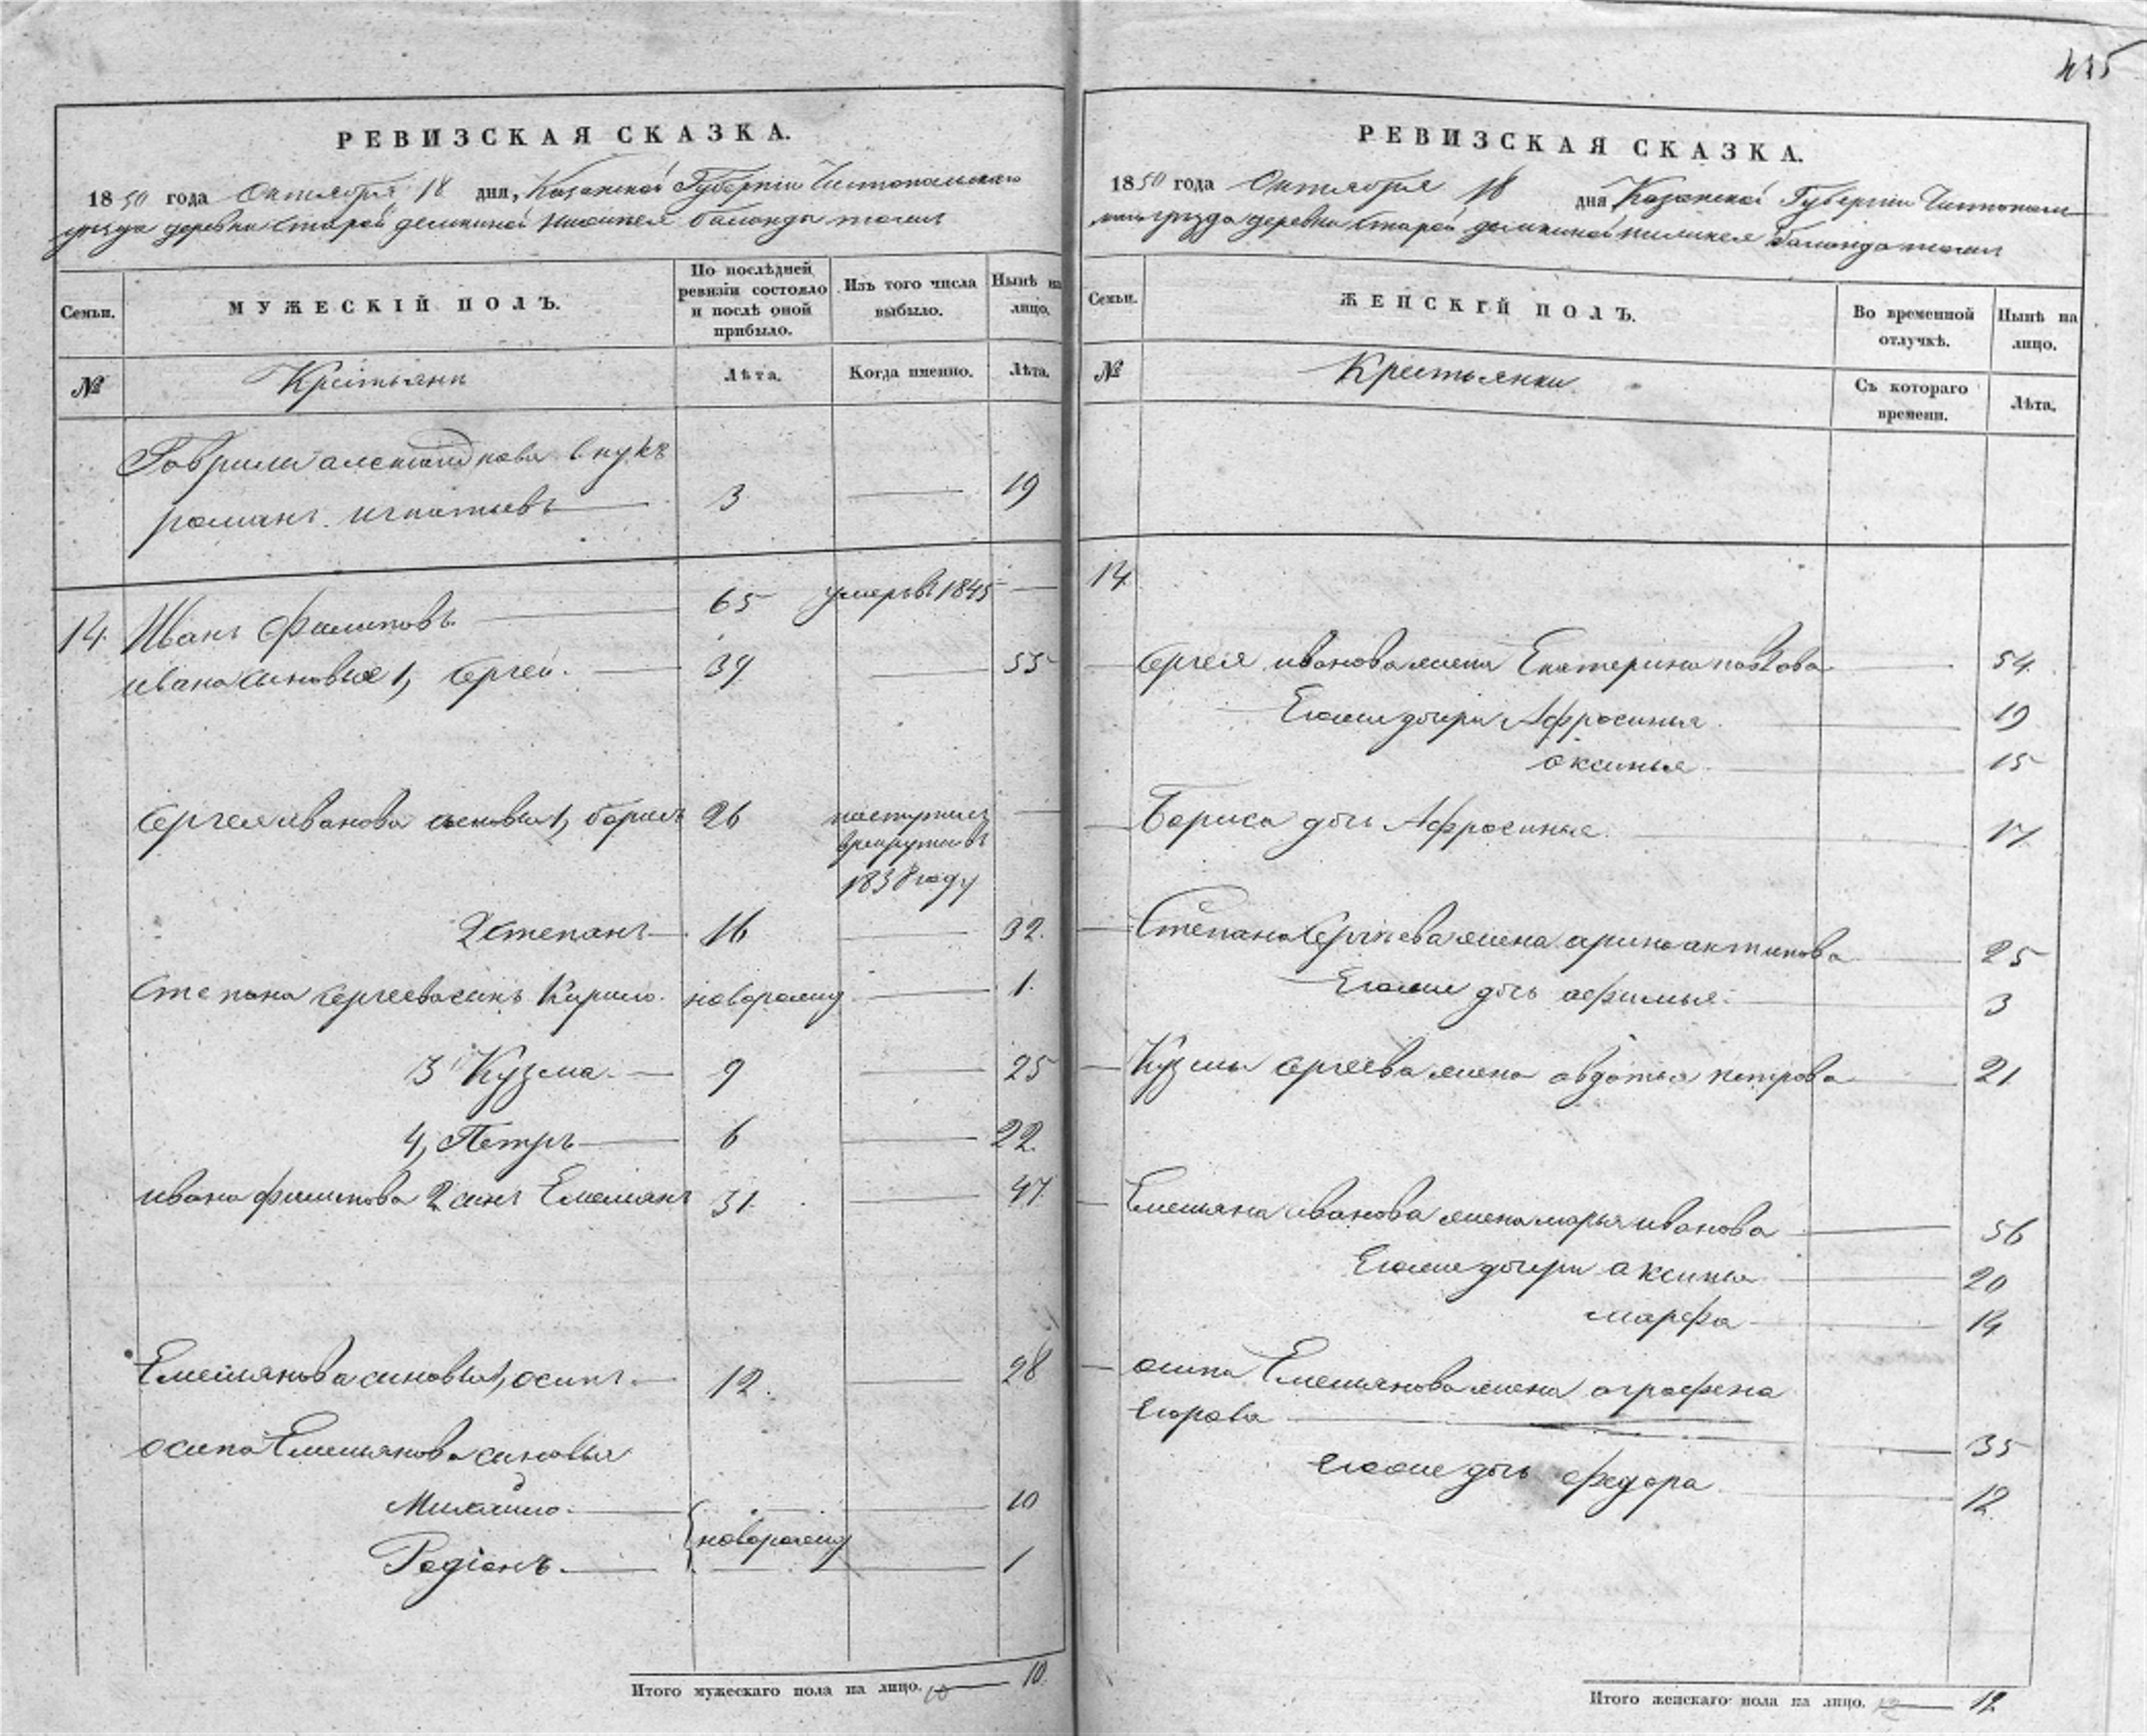 415
РЕВИЗСКАЯ СКАЗКА.
1850 года Октября 18 дня, Казанской Губернiи Чистопольскаго
уезда деревни Старой
Семьи.
МУЖЕСКIЙ ПОЛЪ.
По послѣдней ревизiи состояло и послѣ оной прибыло.
Изъ того числа выбыло.
Нынѣ на лицо.
№
Крестьяни
Лѣта.
Когда именно.
Лѣта.
Гаврилы внукъ
романъ игнатьевъ 3 19
14. Иванъ Филиповъ 65 умеръ въ 1845
ивана сыновья 1, Сергей. 39 55
Сергея иванова сыновья 1, борисъ 26 поступилъ
в рекруты въ
1838 году
2 степанъ 16 32.
Степана сергеева сынъ Кирило. новорожд 1.
3 Кузма 9 25
4, Петръ 6 22.
ивана филипова 2 сынъ Емельянъ 31. 47
Емельянова сыновья 1, осипъ 12. 28
осипа Емельянова сыновья
Михайло. 10
новорожд
Родiонъ. 1
Итого мужескаго пола на лицо. 10 10.
РЕВИЗСКАЯ СКАЗКА.
1850 года Октября 18 дня Казанской Губернiи Чистополь
скаго уезда деревни Старой
Семьи.
ЖЕНСКIЙ ПОЛЪ.
Во временной отлучкѣ.
Нынѣ на лицо.
№
Крестьянки
Съ котораго времени.
Лѣта.
14
Сергея иванова жена Екатерина 54
Егоже дочери Афросинья 19
оксинья 15
Бориса дочь Афросинья. 17
Степана Сергеева жена арина антипова 25
Егоже дочь афимья. 3
Кузмы сергеева жена авдотья петрова 21
Емельяна иванова жена марья иванова 56
Егоже дочери аксинья 20
марфа 14
осипа Емельянова жена аграфена
Егорова 35
Егоже дочь федора 12.
Итого женскаго пола на лицо. 12 12.